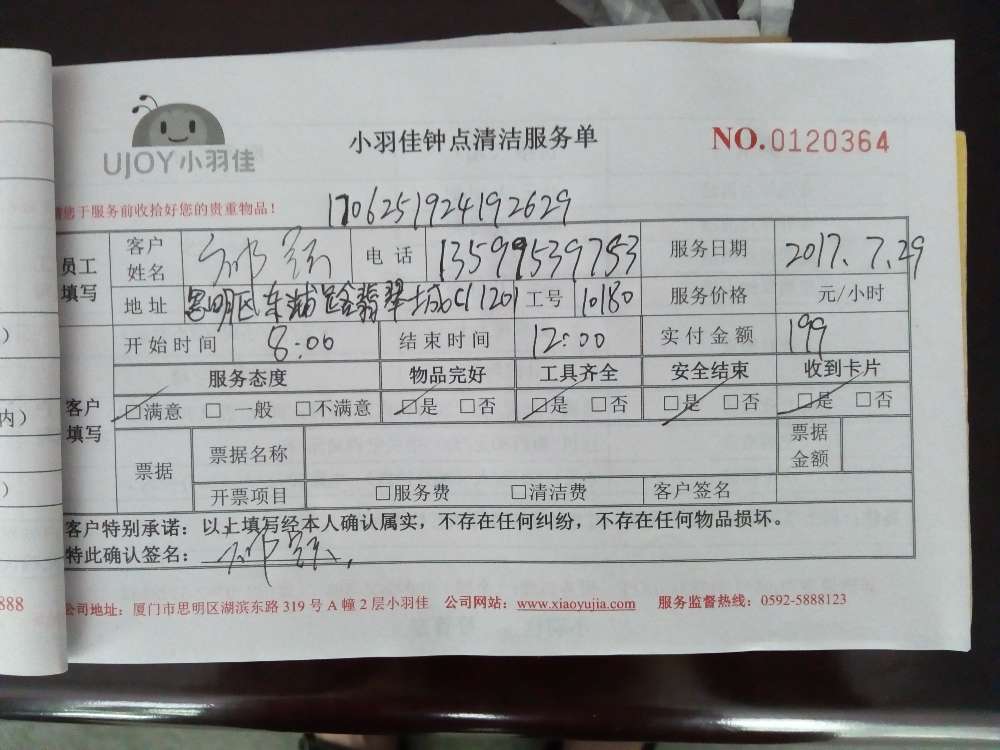 UJOY小羽佳
小羽佳钟点清洁服务单
NO.0120364
请您于服务前收拾好您的贵重物品！
1706251924192629
员工填写 客户姓名 电话 13599539753 服务日期 2017.7.29
地址 思明区东浦路翡翠城C11201 工号 10180 服务价格 元/小时
开始时间 8:00 结束时间 12:00 实付金额 199
客户填写 服务态度 物品完好 工具齐全 安全结束 收到卡片
□满意 □一般 □不满意 □是 □否 □是 □否 □是 □否 □是 □否
票据 票据名称 票据金额
开票项目 □服务费 □清洁费 客户签名
客户特别承诺：以上填写经本人确认属实，不存在任何纠纷，不存在任何物品损坏。
特此确认签名：
公司地址：厦门市思明区湖滨东路 319 号 A 幢 2 层小羽佳 公司网站：www.xiaoyujia.com 服务监督热线：0592-5888123
内）
888